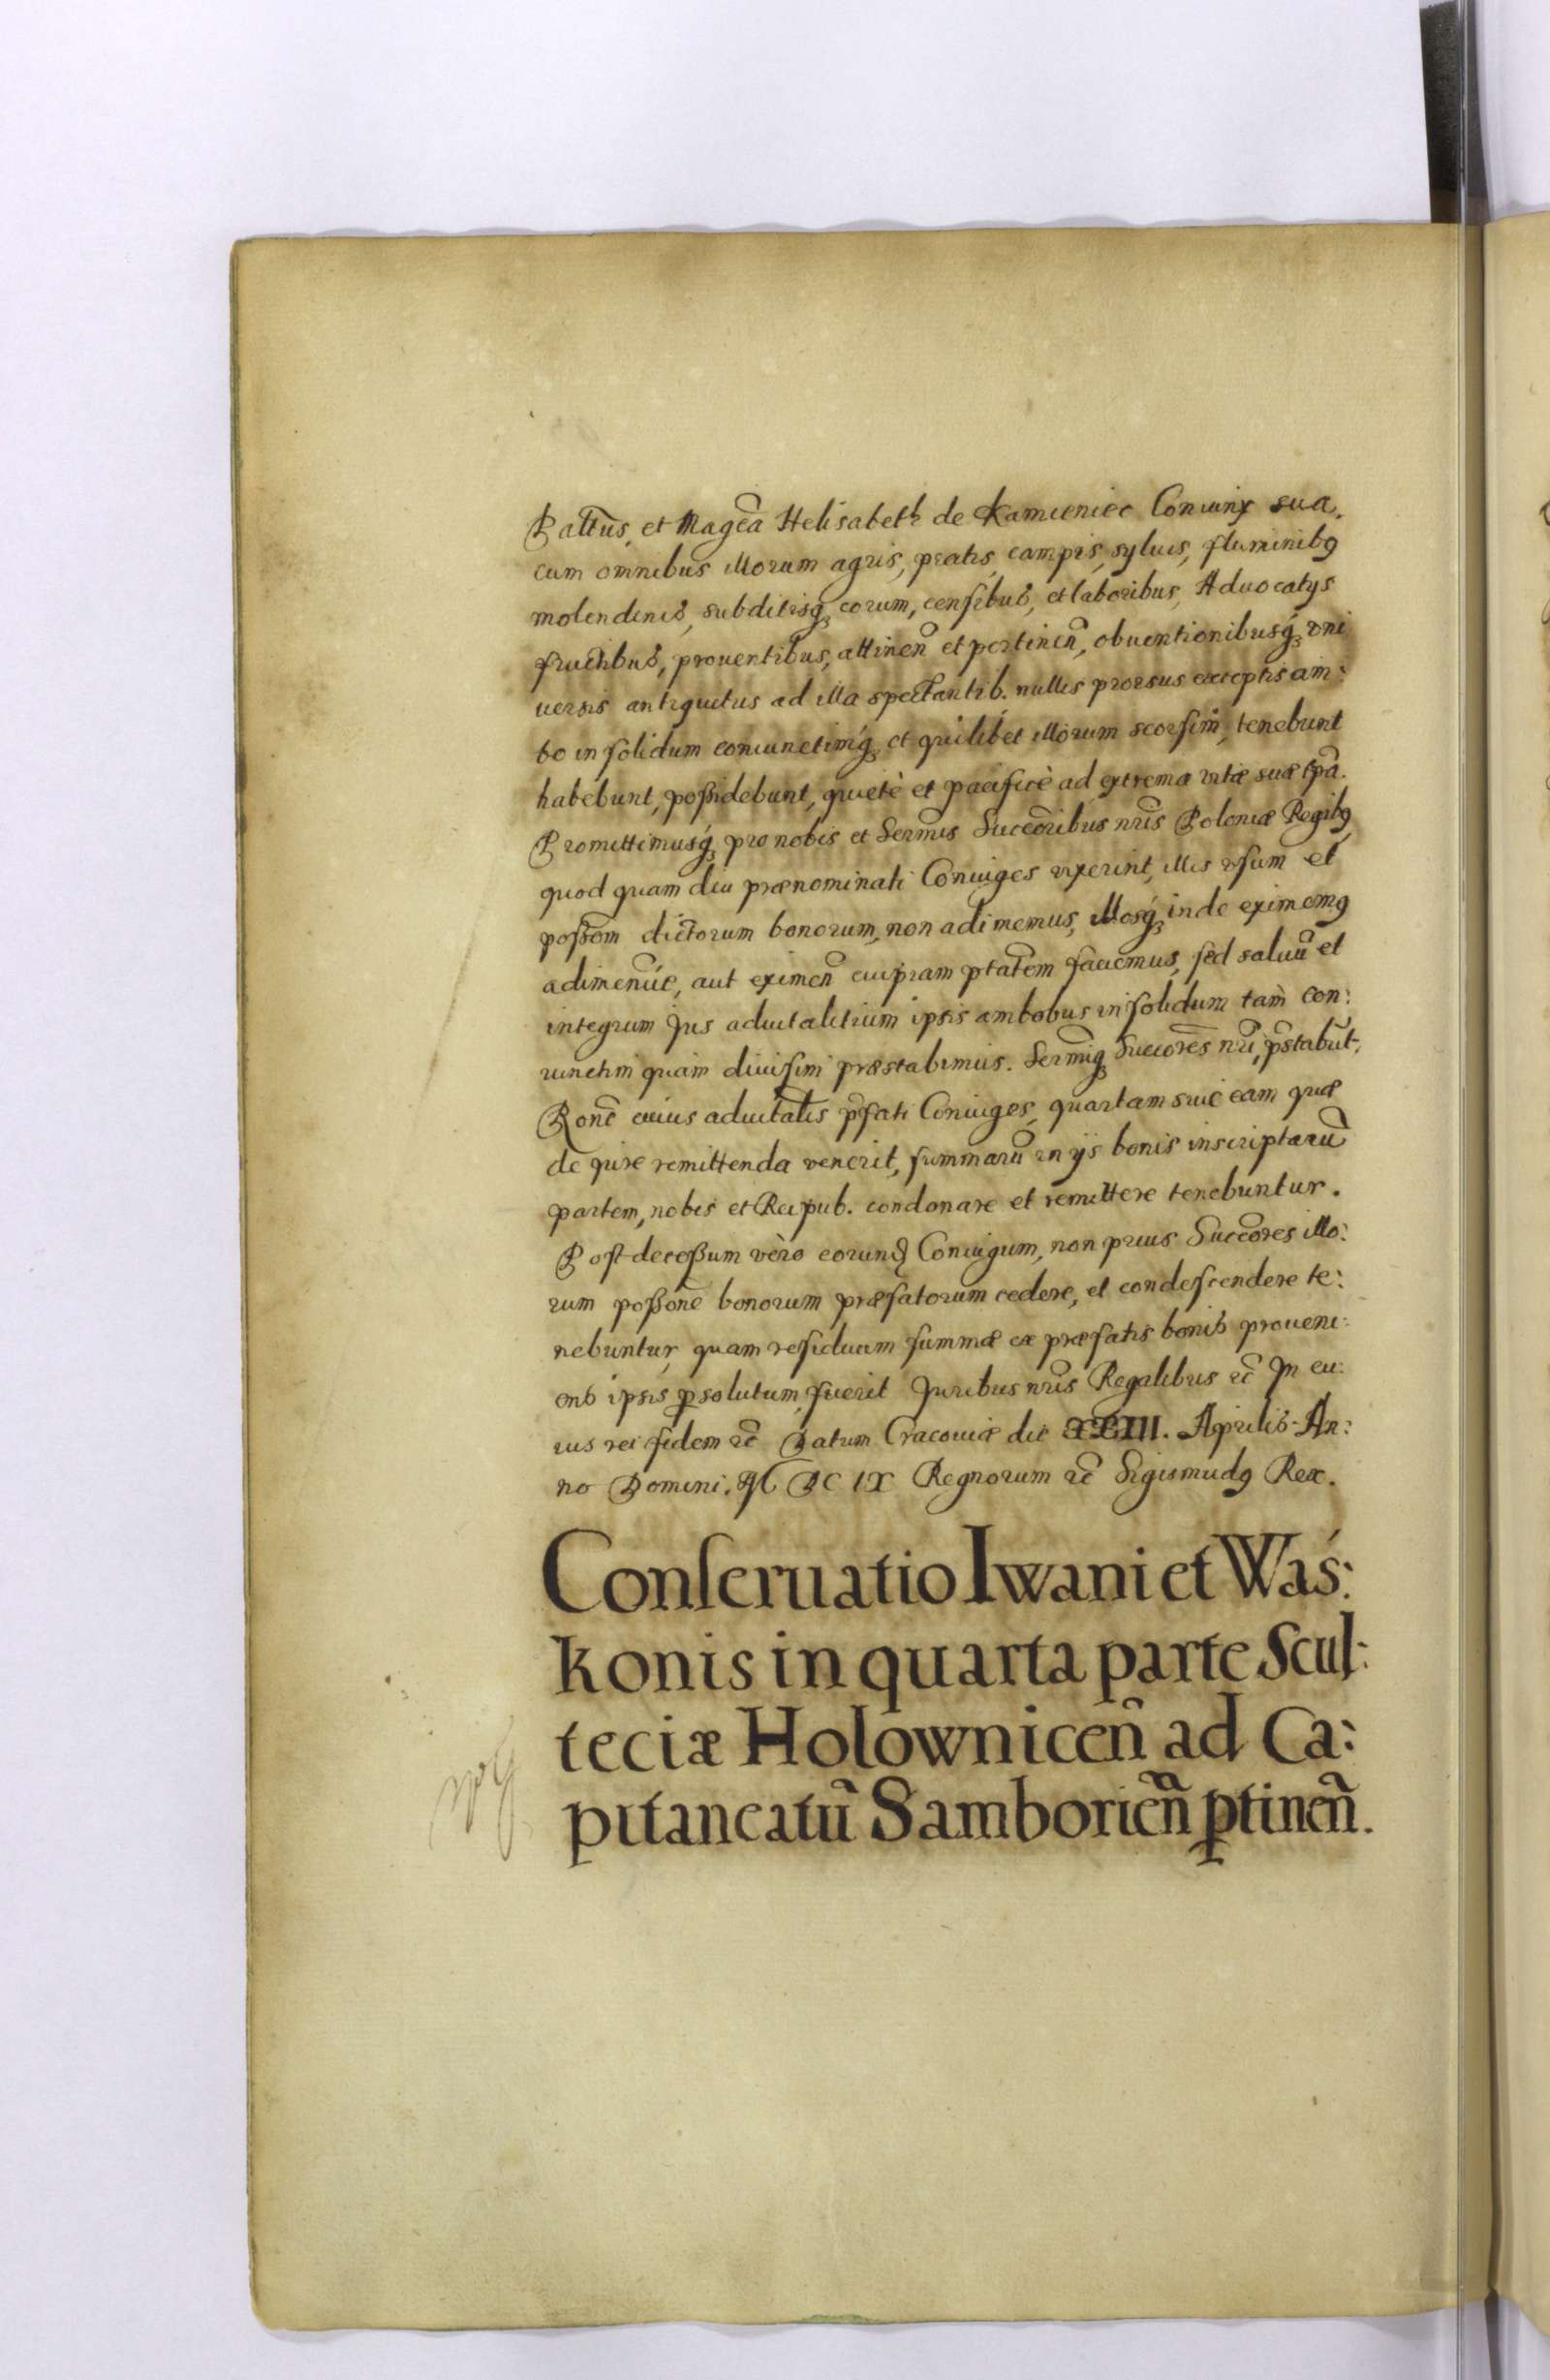 Paltus, et Magca Helisabeth de Kamieniec Coniunx sua.
cum omnibus illorum agris, pratis, campis, syluis, fluminibꝰ
molendinis, subditisqꝫ eorum, censibus, et laboribus, Aduocatijs
fructibus, prouentibus, attineñ et pertineñ, obuentionibusqꝫ vni
uersis antiquitus ad illa spectantib. nullis prorsus exceptis am:
bo in solidum coniunctimqꝫ et quilibet illorum seorsim, tenebunt
habebunt, possidebunt, quietè et pacificè ad extrema vitæ suæ tpã.
Promittimusqꝫ pro nobis et Sermis Succoribus nris Poloniæ Regibꝰ
quod quam diu prænominati Coniuges vixerint, illis vsum et
possom dictorum bonorum, non adimemus, illosqꝫ inde eximemꝰ
adimendiue, aut eximeñ cuipiam ptatem faciemus, sed saluũ et
integrum Jus aduitalitium ipsis ambobus in solidum tam con:
iunctim quàm diuisim præstabimus. Sermiqꝫ Succores nri, pstabũt.
Rone cuius aduitalis pfati Coniuges, quartam siue eam quæ
de iure remittenda venerit, summarũ in ijs bonis inscriptarũ
partem, nobis et Reipub. condonare et remittere tenebuntur.
Post decessum verò eorund Coniugum, non prius Succores illo:
rum possone bonorum præfatorum cedere, et condescendere te:
nebuntur, quam residuum summæ ex præfatis bonis proueni:
ens ipsis psolutum fuerit Juribus nris Regalibus ꝛc̃ In cu:
ius rei fidem ꝛc̃ Datum Cracouiæ die XXIII. Aprilis An:
no Domini. M DC IX Regnorum ꝛc̃ Sigismũdꝰ Rex.
Conseruatio Iwani et Waś:
konis in quarta parte Scul:
teciæ Holowniceñ ad Ca:
pitaneatũ Samborieñ ptineñ.